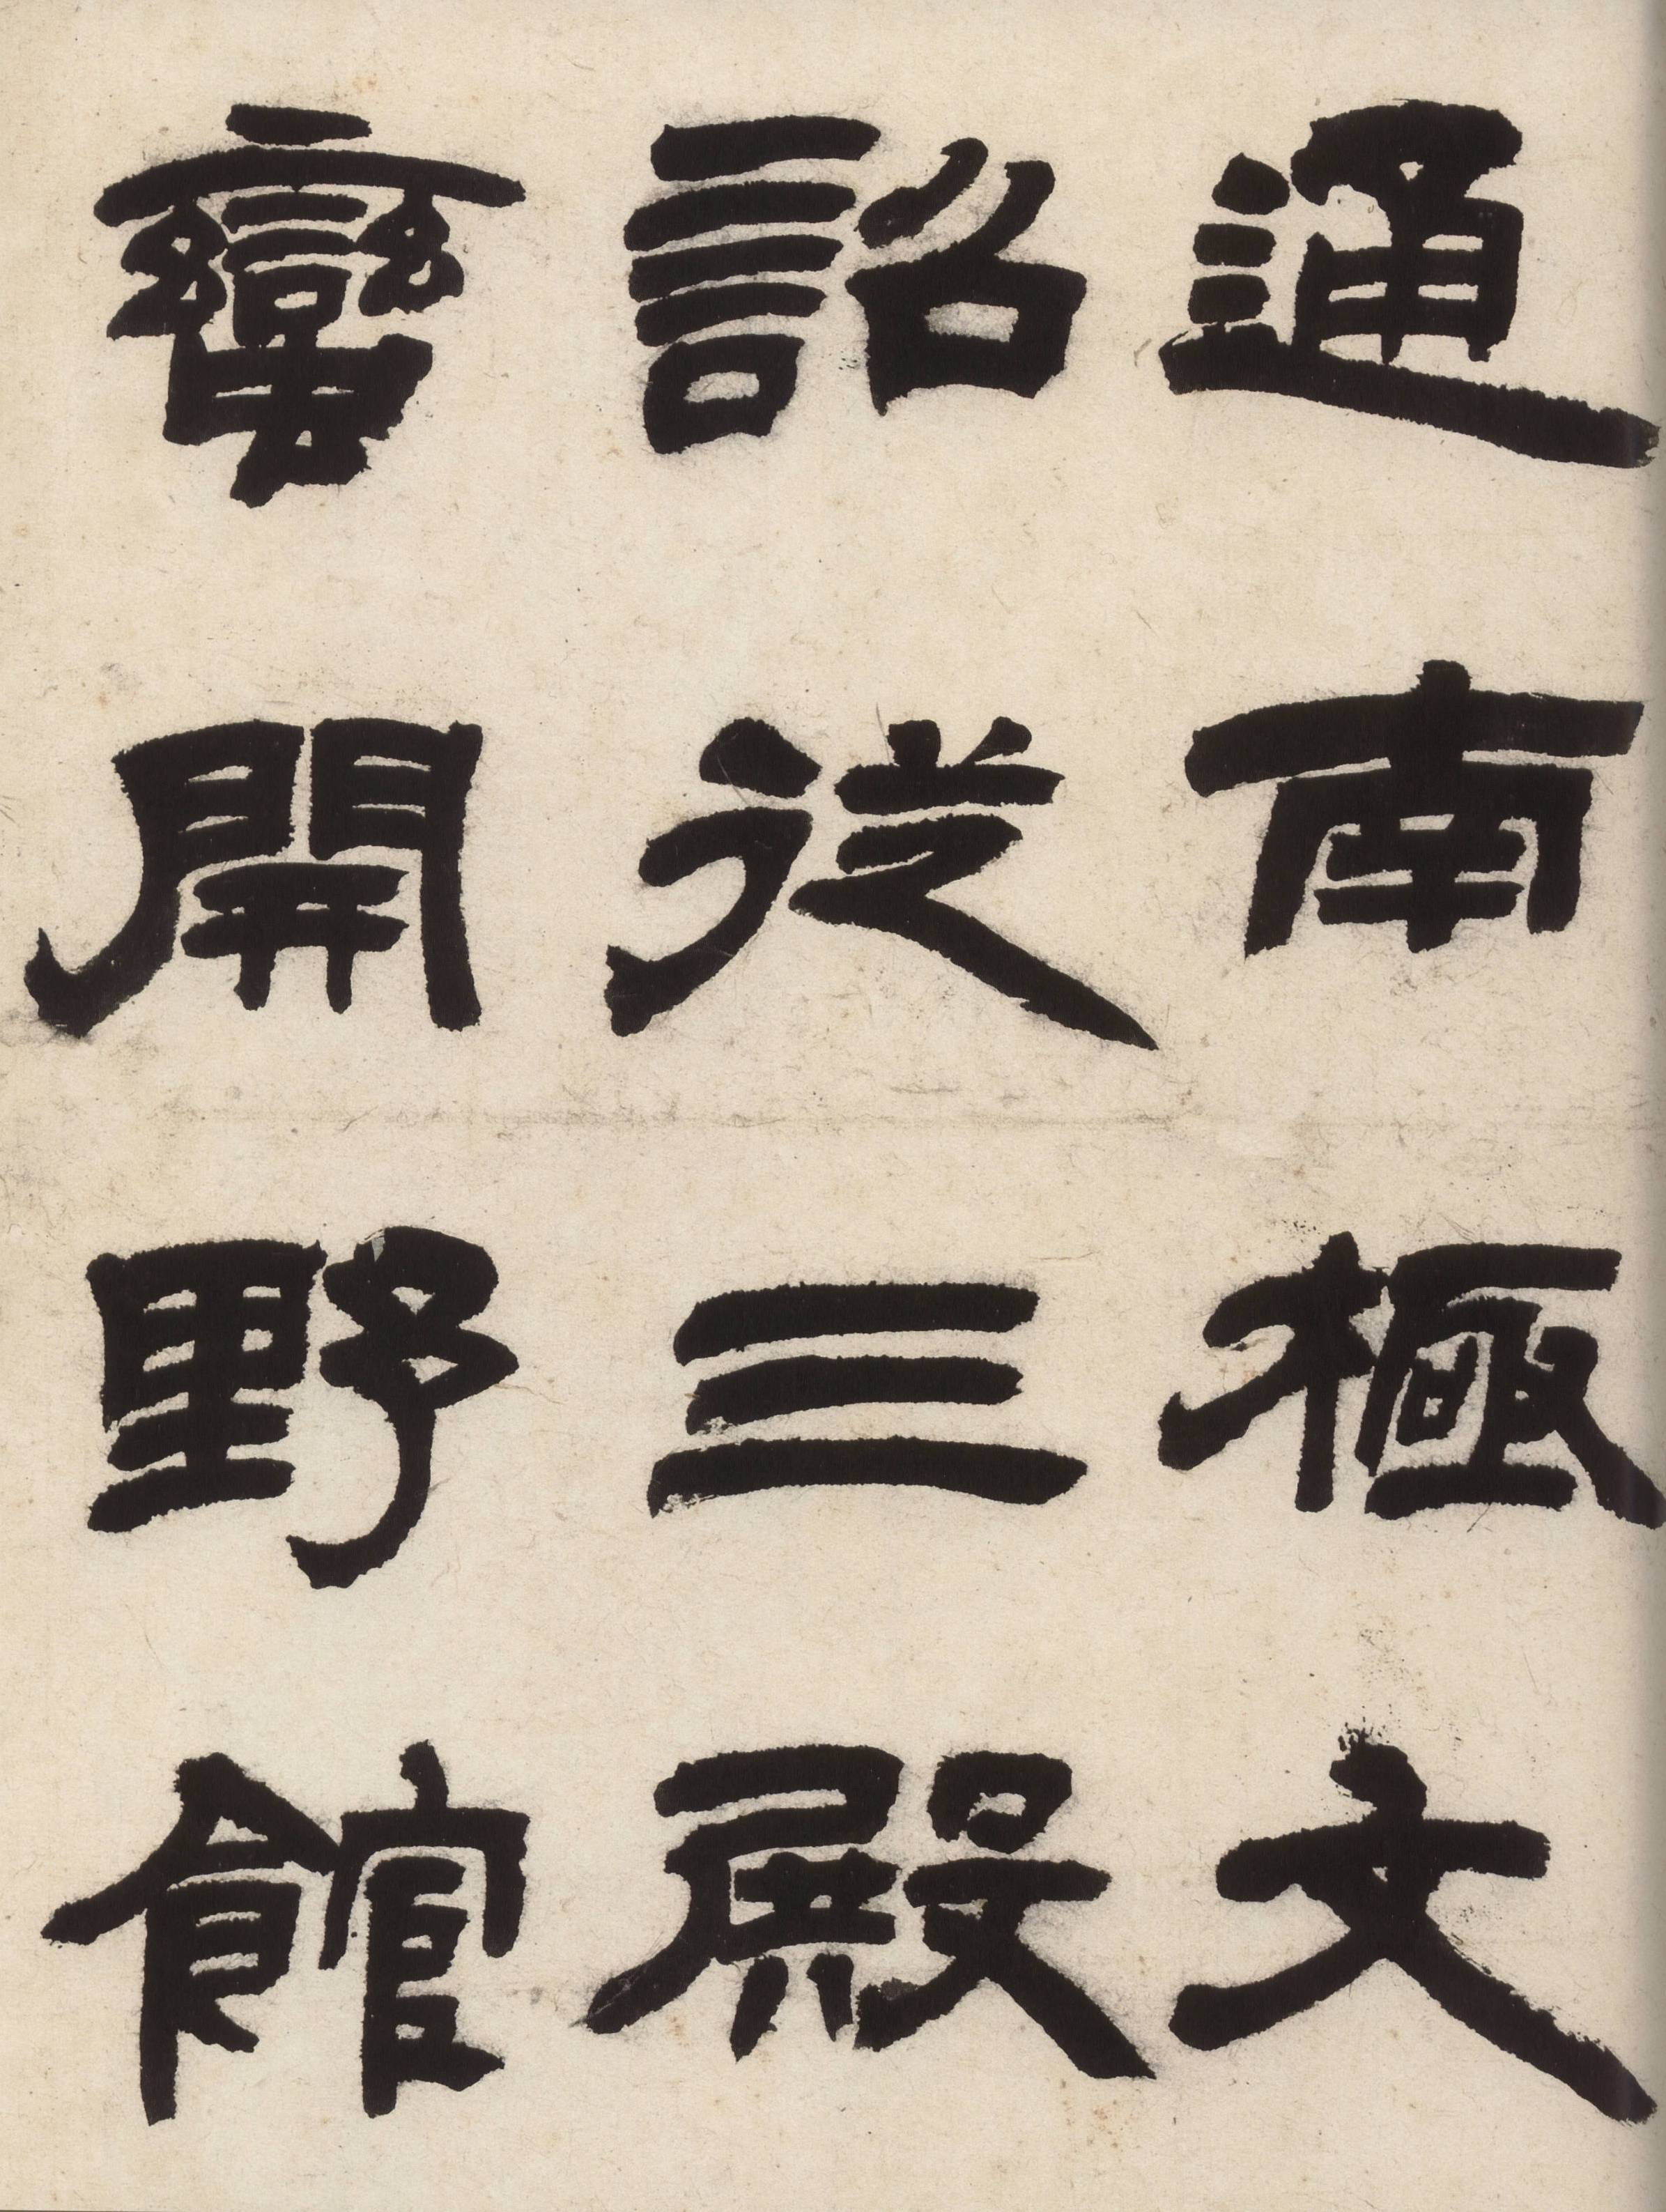 通南極文
詔從三殿
蠻開野館